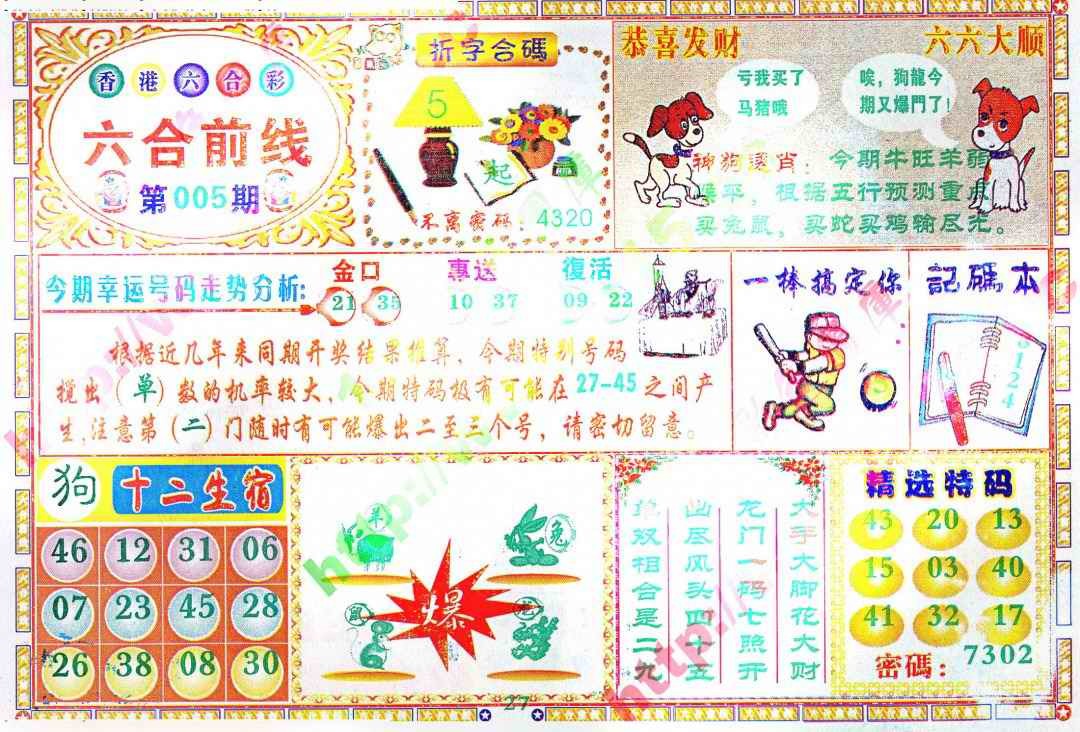 香港六合彩
六合前线
第005期
折字合碼
5
起
不离密码：4320
恭喜发财
六六大顺
亏我买了
马猪哦
唉，狗龍今
期又爆門了！
今期牛旺羊弱
平，根据五行预测重
买兔鼠，买蛇买鸡输尽光。
今期幸运号码走势分析:
金口
21 35
惠送
10 37
復活
09 22
根据近几年来同期开奖结果推算，今期特别号码
搅出（单）数的机率较大，今期特码极有可能在27-45之间产
生,注意第(二)门随时有可能爆出二至三个号，请密切留意。
一棒搞定你
記碼本
124
狗
十二生宿
46 12 31 06
07 23 45 28
26 38 08 30
羊
兔
鼠
爆
大手大脚花大财
龙门一码七照开
幽尽风头四十五
双相合是二九
精选特码
43 20 13
15 03 40
41 32 17
密碼：7302
27